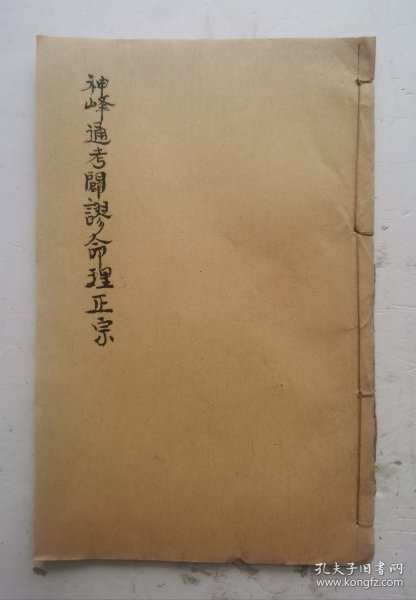 神峰通考闢謬命理正宗
孔夫子旧书网
www.kongfz.com